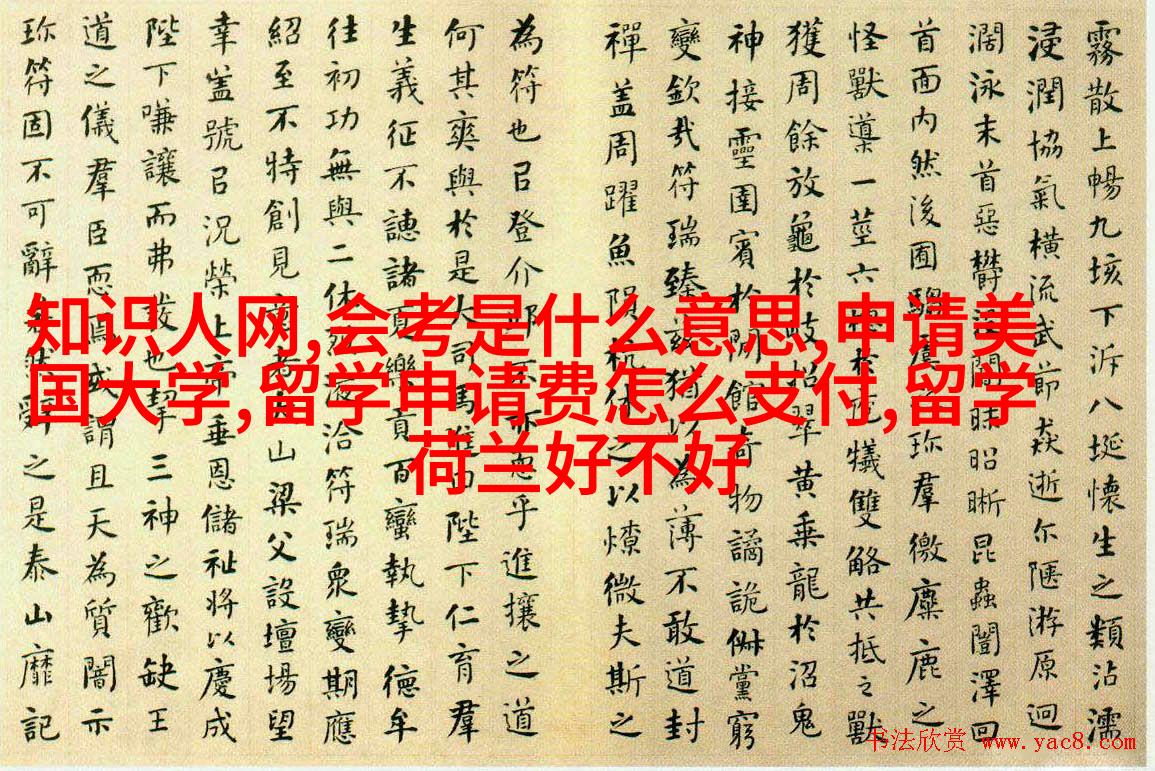 霧散上暢九垓下泝八埏懷生之類沾濡
浸潤協氣橫流武節猋逝尔陿游原迥
濶泳末首惡欝沒闇昧昭晰昆蟲闓澤回
首面内然後囿騶虞之珍羣徼麋鹿之
怪獸導一莖六穗於庖犧雙觡共抵之獸
獲周餘放龜於岐招翠黃乗龍於沼鬼
神接靈圉賓於閒館奇物譎詭俶黨窮
變欽哉符瑞臻兹猶以為薄不敢道封
禪盖周躍魚隕杭休之以燎微夫斯之
為符也㠯登介丘不亦恧乎進攘之道
何其爽與於是大司馬進曰陛下仁育羣
生義征不譓諸夏樂貢百蠻執摯德牟
往初功無與二休烈浹洽符瑞衆變期應
紹至不特創見意者太山梁父設壇場望
幸盖號㠯况榮上帝垂恩儲祉将以慶成
陛下嗛讓而弗發也挈三神之歡缺王
道之儀羣臣恧焉或謂且天為質闇示
珍符固不可辭若然辭之是泰山靡記
知识人网,会考是什么意思,申请美
国大学,留学申请费怎么支付,留学
荷兰好不好
书法欣赏 www.yac8.com